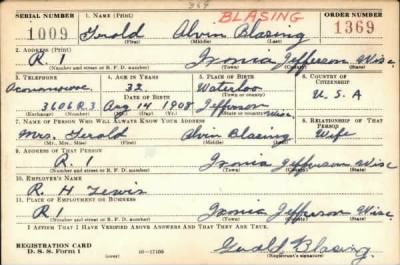 369
BLASING
SERIAL NUMBER 1. NAME (Print) ORDER NUMBER
1009 Gerold Alvin Blasing 1369
(First) (Middle) (Last)
2. ADDRESS (Print)
R 1 Ixonia Jefferson Wisc
(Number and street or R. F. D. number) (Town) (County) (State)
3. TELEPHONE 4. AGE IN YEARS 5. PLACE OF BIRTH 6. COUNTRY OF CITIZENSHIP
Oconomowoc 32 Waterloo
DATE OF BIRTH (Town or county)
3606 R 3 Aug 14 1908 Jefferson Wisc. U. S. A
(Exchange) (Number) (Mo.) (Day) (Yr.) (State or country)
7. NAME OF PERSON WHO WILL ALWAYS KNOW YOUR ADDRESS 8. RELATIONSHIP OF THAT PERSON
Mrs. Gerold Alvin Blasing Wife
(Mr., Mrs., Miss) (First) (Middle) (Last)
9. ADDRESS OF THAT PERSON
R. 1 Ixonia Jefferson Wisc
(Number and street or R. F. D. number) (Town) (County) (State)
10. EMPLOYER'S NAME
R. H Lewis
11. PLACE OF EMPLOYMENT OR BUSINESS
R 1 Ixonia Jefferson Wisc.
(Number and street or R. F. D. number) (Town) (County) (State)
I AFFIRM THAT I HAVE VERIFIED ABOVE ANSWERS AND THAT THEY ARE TRUE.
REGISTRATION CARD
D. S. S. Form 1 (over) 16—17105 Gerold Blasing.
(Registrant's signature)